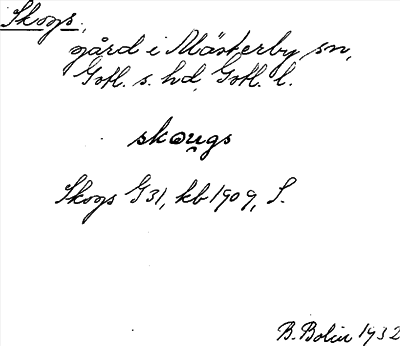 Skogs,
gård i Mästerby sn,
Gotl. s. hd, Gotl. l.
skou̯gs
Skogs G31, kb 1909, S.
B. Bolin 1932